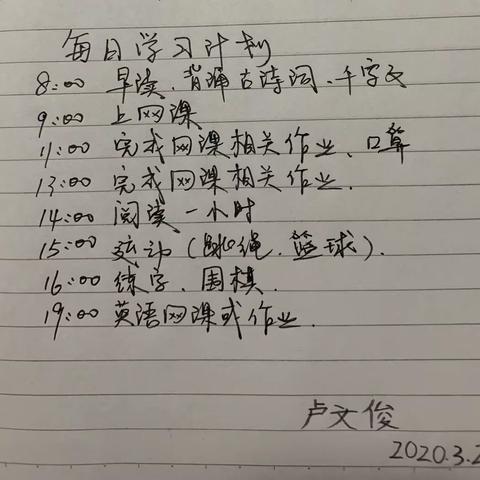 每日学习计划
8:00 早读、背诵古诗词、千字文
9:00 上网课
11:00 完成网课相关作业、口算
13:00 完成网课相关作业.
14:00 阅读一小时
15:00 运动(跳绳.篮球).
16:00 练字、围棋.
19:00 英语网课或作业.
卢文俊
2020.3.2